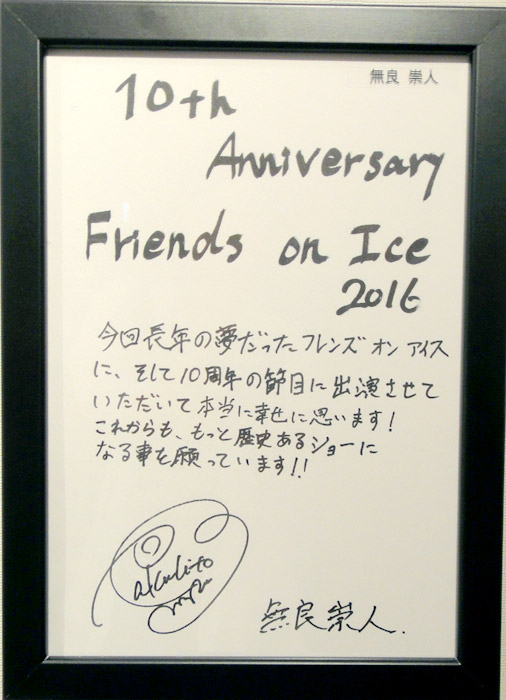 無良 崇人
10th
Anniversary
Friends on Ice
2016
今回長年の夢だったフレンズ オン アイス
に、そして10周年の節目に出演させて
いただいて本当に幸せに思います!
これからも、もっと歴史あるショーに
なる事を願っています!!
無良崇人.